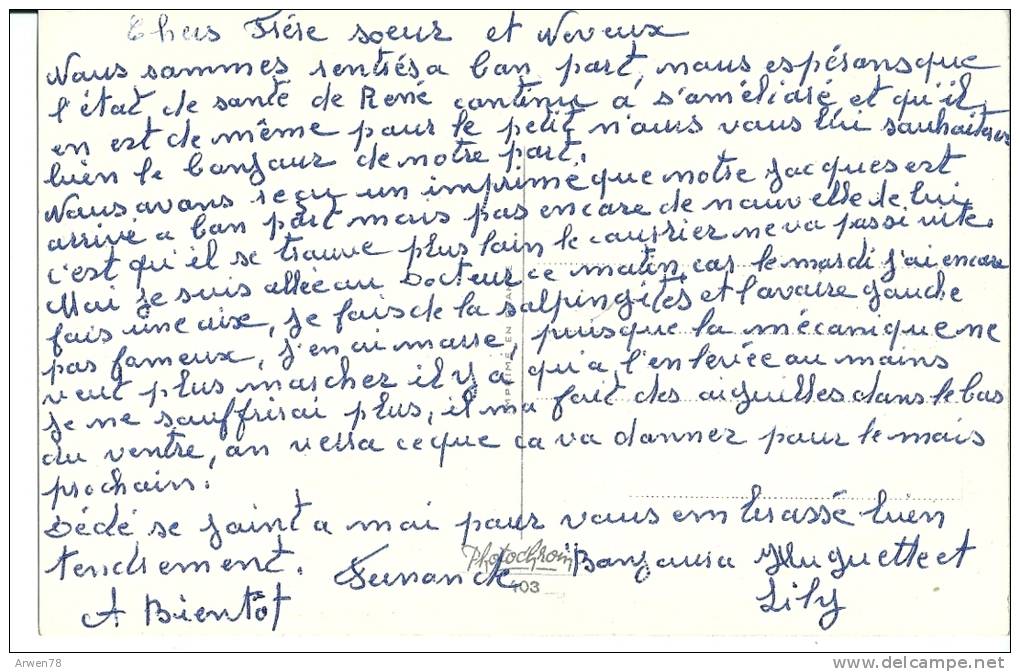 Chers Frére soeur et Neveux
Nous sommes rentrés a bon part, nous espérons que
l'état de santé de René continu a s'amélioré et qu'il
en est de même pour le petit n'ous vous lui souhaiterer
bien le bonjour de notre part.
Nous avons reçu un imprimé que notre Jacques est
arrivé a bon part mais pas encore de nouvelle de lui
c'est qu'il se trouve plus loin le courrier ne va pas si vite.
Moi je suis allée au Docteur ce matin, car le mardi j'ai encore
fais une aix, je fais de la salpingites et l'avoire gauche
pas fameux, j'en ai marre, puisque la mécanique ne
veut plus marcher il y a qu'a l'enlevée au moins
je ne souffrirai plus, il ma fait des aiguilles dans le bas
du ventre, on verra ce que ça va donner pour le mois
prochain.
Dédé se joint a moi pour vous embrassé bien
tendrement. Fernande Bonjour a Huguette et
A Bientôt Lily
Photochrom
403
IMPRIMÉ EN
Arwen78
www.delcampe.net